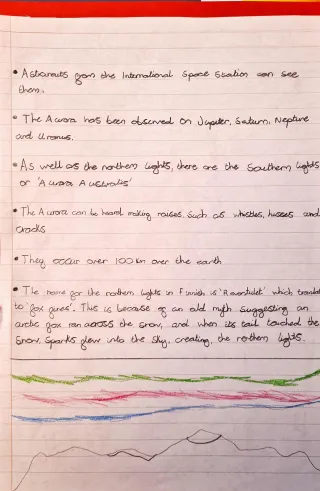 • Astronauts from the International Space Station can see
them.
• The Aurora has been observed on Jupiter, Saturn, Neptune
and Uranus.
• As well as the northern lights, there are the Southern lights
or 'Aurora Australis'
• The Aurora can be heard making noises. Such as whistles, hisses and
cracks
• They occur over 100km over the earth
• The name for the northern lights in Finnish is 'Revontulet' which translate
to "fox fires". This is because of an old myth suggesting an
arctic fox ran across the snow, and when its tail touched the
snow, sparks flew into the sky, creating, the northern lights.